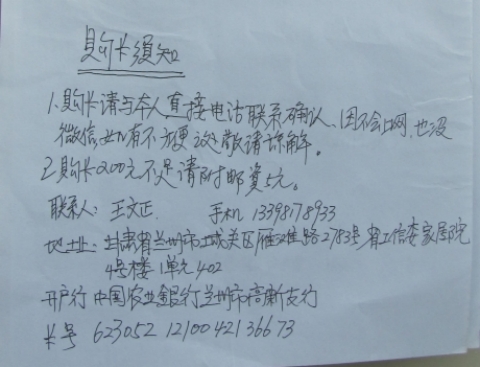 购卡须知
1.购卡请与本人直接电话联系确认、因不会上网,也没
微信,如有不方便之处敬请谅解。
2.购卡200元不足请附邮资5元。
联系人:王文正 手机 13398178933
地址:甘肃省兰州市城关区雁滩路2783号省工信委家属院
4号楼1单元402
开户行 中国农业銀行兰州市高新支行
卡号 623052 1210042136673